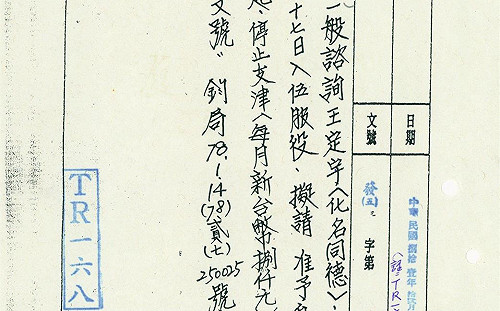 日期
中華民國捌拾壹年拾
文號 發(五)之 字第
一般諮詢王定宇〈化名同德〉,
十七日入伍服役、擬請 准予
起、停止支津〈每月新台幣捌仟元
文號" 鈞局78.1.14(78)貳(七)250025號
TR一六八